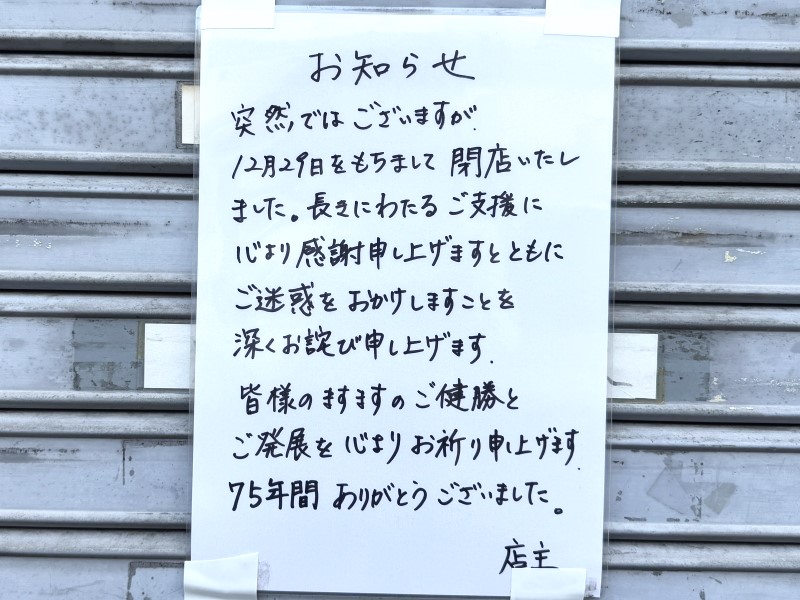 お知らせ
突然ではございますが
12月29日をもちまして閉店いたし
ました。長きにわたるご支援に
心より感謝申し上げますとともに
ご迷惑をおかけしますことを
深くお詫び申し上げます.
皆様のますますのご健勝と
ご発展を心よりお祈り申上げます.
75年間ありがとうございました。
店主